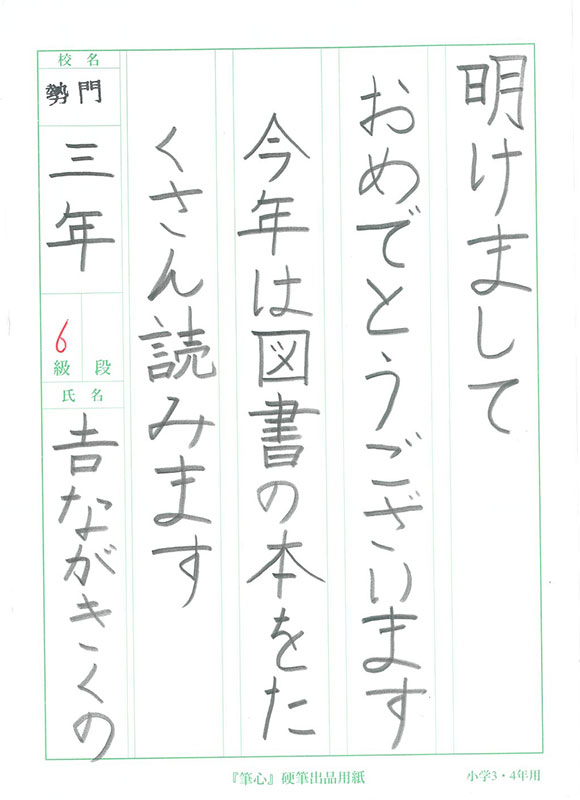 明けまして
おめでとうございます
今年は図書の本をた
くさん読みます
校名
勢門
三年
6
級 段
氏名
吉ながきくの
『筆心』硬筆出品用紙
小学3・4年用